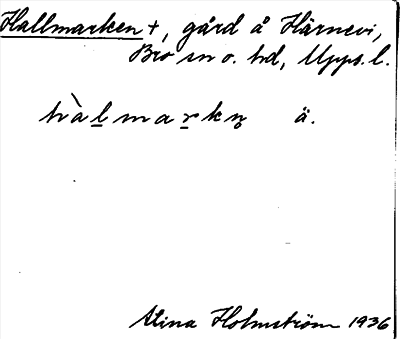 Hallmarken +, gård å Härnevi,
Bro sn o. hd, Upps. l.
hàlmarkn̥ ä.
Stina Holmström 1936